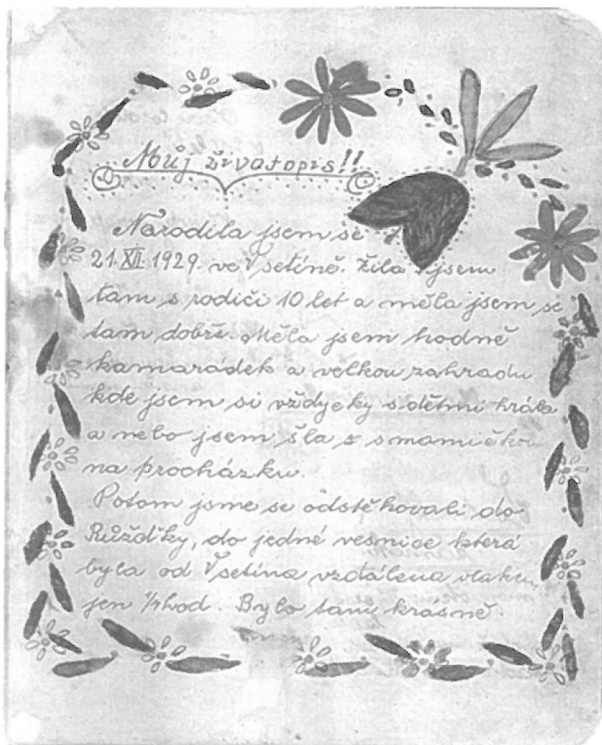 Můj živatopis!!
Narodila jsem se
21. XII. 1929. ve Vsetíně. Žila jsem
tam s rodiči 10 let a měla jsem se
tam dobře. Měla jsem hodně
kamarádek a velkou zahradu
kde jsem si vždycky s dětmi hrála
a nebo jsem šla s smamičkou
na procházku.
Potom jsme se odstěhovali do
Růžďky, do jedné vesnice která
byla od Vsetína vzdálena vlakem
jen ¼ hod. Bylo tam krasně.